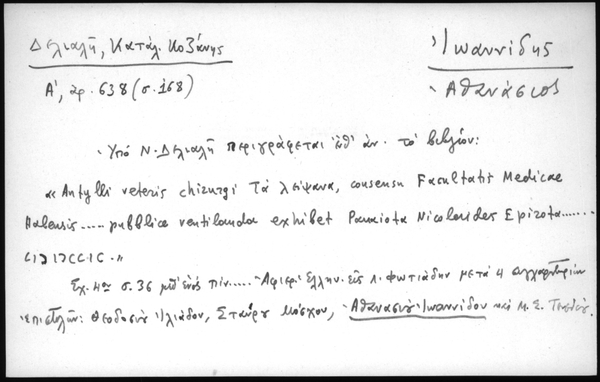 Δελιαλῆ, Κατάλ. Κοζάνης
Ἰωαννίδης
Α', ἀρ. 638 (σ. 168)
Ἀθανάσιος
Ὑπό Ν. Δελιαλῆ περιγράφεται ὑπ' ἀρ. τό βιβλίον:
«Antylli veteris chirurgi τά λείψανα, consensu Facultatis Medicae
Halensis ..... publice ventilanda exhibet Panaiota Nicolaides Epirota ......
CIƆIƆCCIC.»
Σχ. 4ον σ. 36 μεθ' ἑνός πίν..... Ἀφιερ. ἑλλην. εἰς Λ. Φωτιάδην μετά 4
ἐπιστολῶν: Θεοδοσίου Ἠλιάδου, Σταύρου Μόσχου, Ἀθανασίου Ἰωαννίδου καί Μ. Σ.